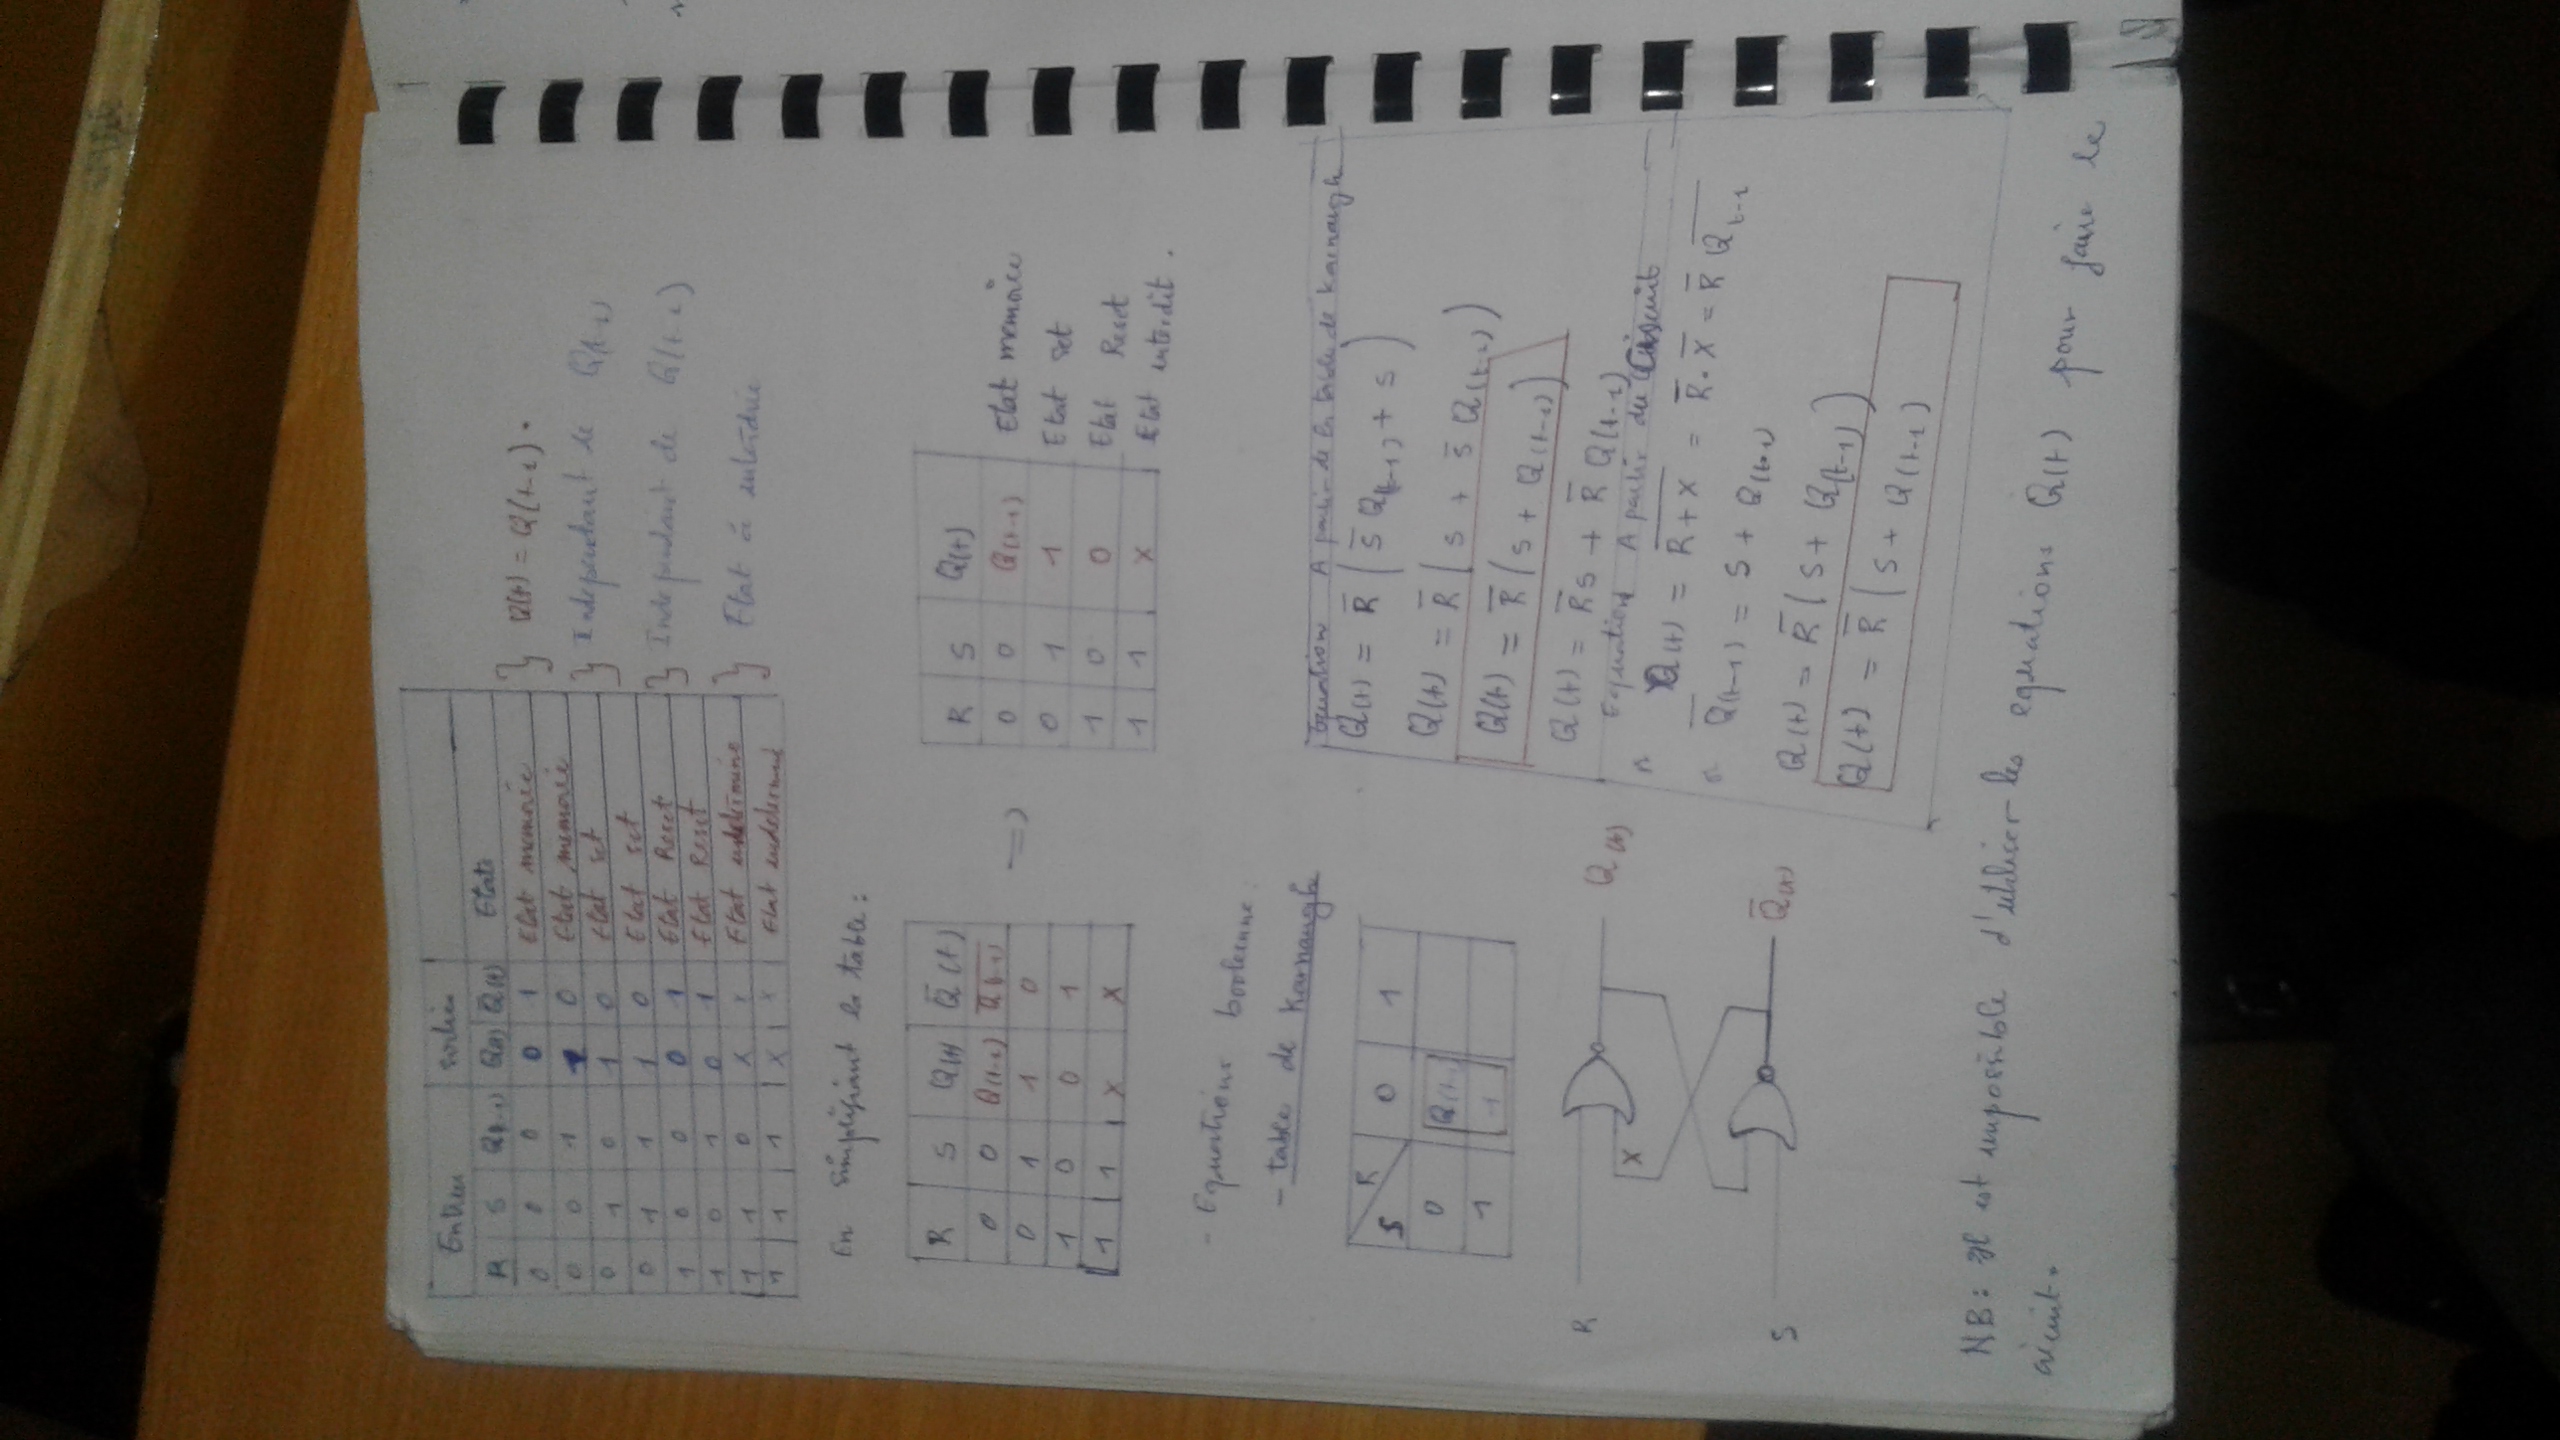 Entrees sorties
R S Q(t-1) Q(t) Q̅(t) Etats
0 0 0 0 1 Etat memoire
0 0 1 1 0 Etat memoire
0 1 0 1 0 Etat set
0 1 1 1 0 Etat set
1 0 0 0 1 Etat Reset
1 0 1 0 1 Etat Reset
1 1 0 X X Etat indetermine
1 1 1 X X Etat indeterminé
} Q(t) = Q(t-1).
} Independant de Q(t-1)
} Independant de Q(t-1)
} Etat à interdire
En simplifiant la table :
R S Q(t) Q̅(t)
0 0 Q(t-1) Q̅(t-1)
0 1 1 0
1 0 0 1
1 1 X X
=>
R S Q(t)
0 0 Q(t-1) Etat memoire
0 1 1 Etat set
1 0 0 Etat Reset
1 1 X Etat interdit.
- Equations booleenne
- table de Karnaugh
S R 0 1
0 Q(t-1)
1 1
Equation A partir de la table de Karnaugh
Q(t) = R̅ ( S̅ Q(t-1) + S )
Q(t) = R̅ ( S + S̅ Q(t-1) )
Q(t) = R̅ ( S + Q(t-1) )
Q(t) = R̅S + R̅ Q(t-1)
R X Q(t)
S Q̅(t)
Equation A partir du Circuit
Q(t) = \overline{R+X} = R̅.X̅ = R̅ \overline{Q̅t-1}
Q̅(t-1) = S + Q(t-1)
Q(t) = R̅ ( S + Q(t-1) )
Q(t) = R̅ ( S + Q(t-1)
NB : Il est impossible d'utiliser les equations Q(t) pour faire le
circuit.